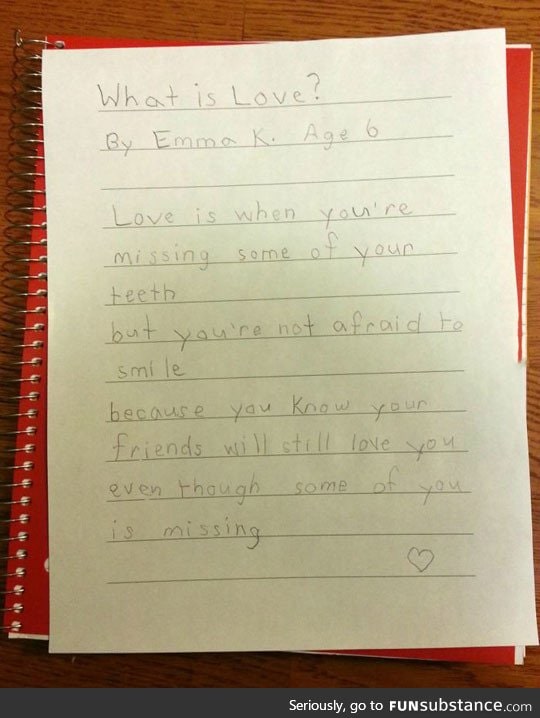 What is Love?
By Emma K. Age 6
Love is when you're
missing some of your
teeth
but you're not afraid to
smile
because you know your
friends will still love you
even though some of you
is missing
Seriously, go to FUNsubstance.com